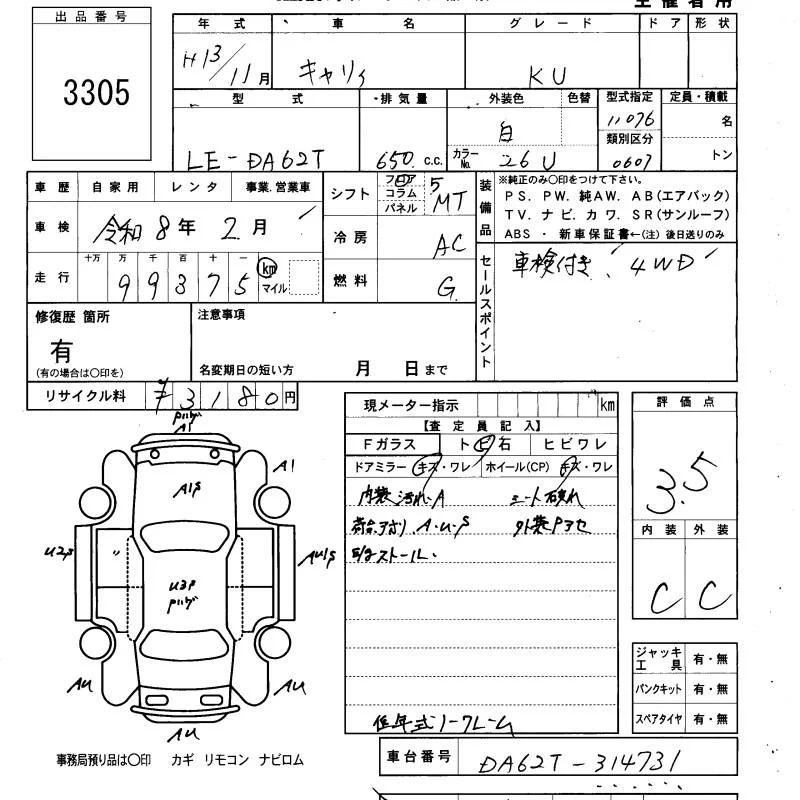 出品番号
3305
年式 車名 グレード ドア 形状
H13/11月 キャリィ KU
型式 排気量 外装色 色替 型式指定 定員・積載
LE-DA62T 650 c.c. 白 11076 名
カラーNo. 26U 類別区分 0607 トン
車歴 自家用 レンタ 事業.営業車
シフト フロア コラム パネル 5MT
装備品
※純正のみ○印をつけて下さい。
PS. PW. 純AW. AB(エアバック)
TV. ナビ. カワ. SR(サンルーフ)
ABS ・ 新車保証書←(注) 後日送りのみ
車検 令和8年2月
冷房 AC
走行 十万 万 千 百 十 一
99375 km マイル
燃料 G
セールスポイント
車検付き 4WD
修復歴 箇所
有
(有の場合は○印を)
注意事項
名変期日の短い方 月 日まで
リサイクル料 ¥3180円
現メーター指示 km
【査定員記入】
Fガラス トビ石 ヒビワレ
ドアミラー キズ・ワレ ホイール(CP) キズ・ワレ
内装汚れ・A シート破れ
荷台アオリ.A・U・S 外装Pアセ
低年式ノークレーム
評価点
3.5
内装 外装
C C
A1
A1S
A1
U2S
AU1S
U3P
AU
AU
AU
ジャッキ工具 有・無
パンクキット 有・無
スペアタイヤ 有・無
事務局預り品は○印 カギ リモコン ナビロム
車台番号 DA62T-314731